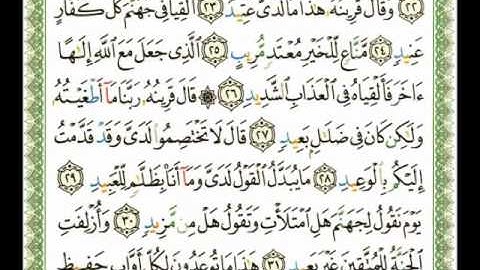 ﴿٢٢﴾ وَقَالَ قَرِينُهُ هَٰذَا مَا لَدَىَّ عَتِيدٌ ﴿٢٣﴾ أَلْقِيَا فِى جَهَنَّمَ كُلَّ كَفَّارٍ
عَنِيدٍ ﴿٢٤﴾ مَّنَّاعٍ لِّلْخَيْرِ مُعْتَدٍ مُّرِيبٍ ﴿٢٥﴾ ٱلَّذِى جَعَلَ مَعَ ٱللَّهِ إِلَٰهًا
ءَاخَرَ فَأَلْقِيَاهُ فِى ٱلْعَذَابِ ٱلشَّدِيدِ ﴿٢٦﴾ ۞ قَالَ قَرِينُهُۥ رَبَّنَا مَآ أَطْغَيْتُهُۥ
وَلَٰكِن كَانَ فِى ضَلَٰلٍۭ بَعِيدٍ ﴿٢٧﴾ قَالَ لَا تَخْتَصِمُوا۟ لَدَىَّ وَقَدْ قَدَّمْتُ
إِلَيْكُم بِٱلْوَعِيدِ ﴿٢٨﴾ مَا يُبَدَّلُ ٱلْقَوْلُ لَدَىَّ وَمَآ أَنَا۠ بِظَلَّٰمٍ لِّلْعَبِيدِ ﴿٢٩﴾
يَوْمَ نَقُولُ لِجَهَنَّمَ هَلِ ٱمْتَلَأْتِ وَتَقُولُ هَلْ مِن مَّزِيدٍ ﴿٣٠﴾ وَأُزْلِفَتِ
ٱلْجَنَّةُ لِلْمُتَّقِينَ غَيْرَ بَعِيدٍ ﴿٣١﴾ هَٰذَا مَا تُوعَدُونَ لِكُلِّ أَوَّابٍ حَفِيظٍ